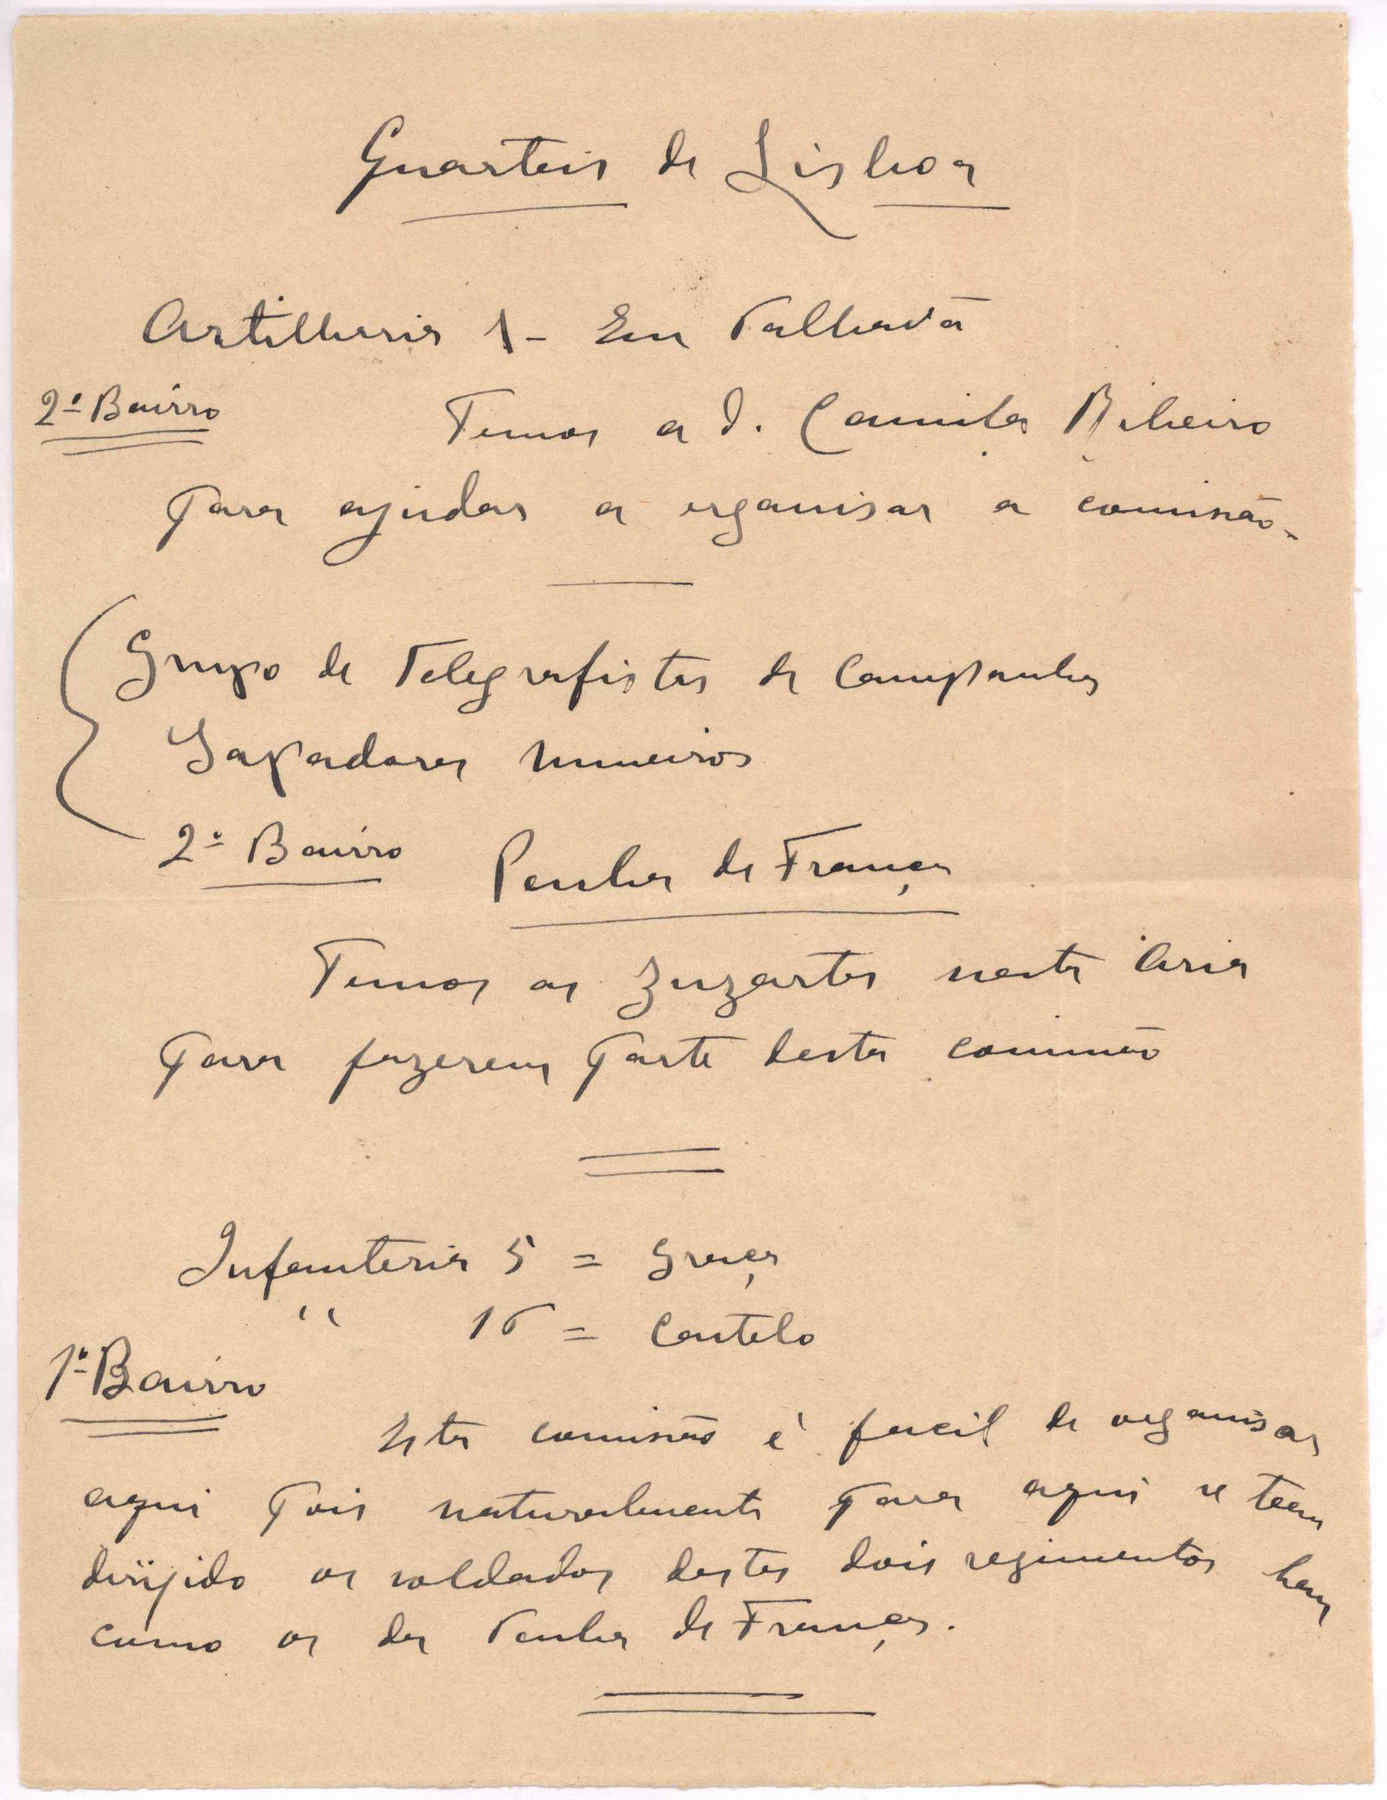 Quarteis de Lisboa
Artilharia 1 - Em Palhavã
2º Bairro
Temos a D. Camila Ribeiro
para ajudar a organisar a comissão.
Grupo de Telegrafistas de Campanha
Sapadores Mineiros
2º Bairro Penha de França
Temos as Zuzartes nesta
para fazerem parte desta comissão
Infanteria 5 = Graça
" 16 = Castelo
1º Bairro
Esta comissão é facil de organisar
aqui pois naturalmente para aqui se teem
dirijido os soldados destes dois regimentos bem
como os da Penha de França.